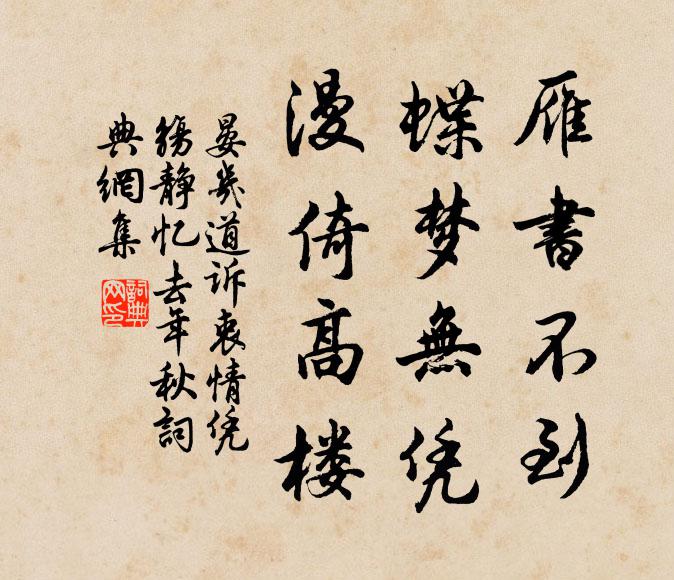 雁書不到
蝶梦無凭
漫倚高楼
晏幾道诉衷情凭
觞静忆去年秋詞
典網集
詞典
网印